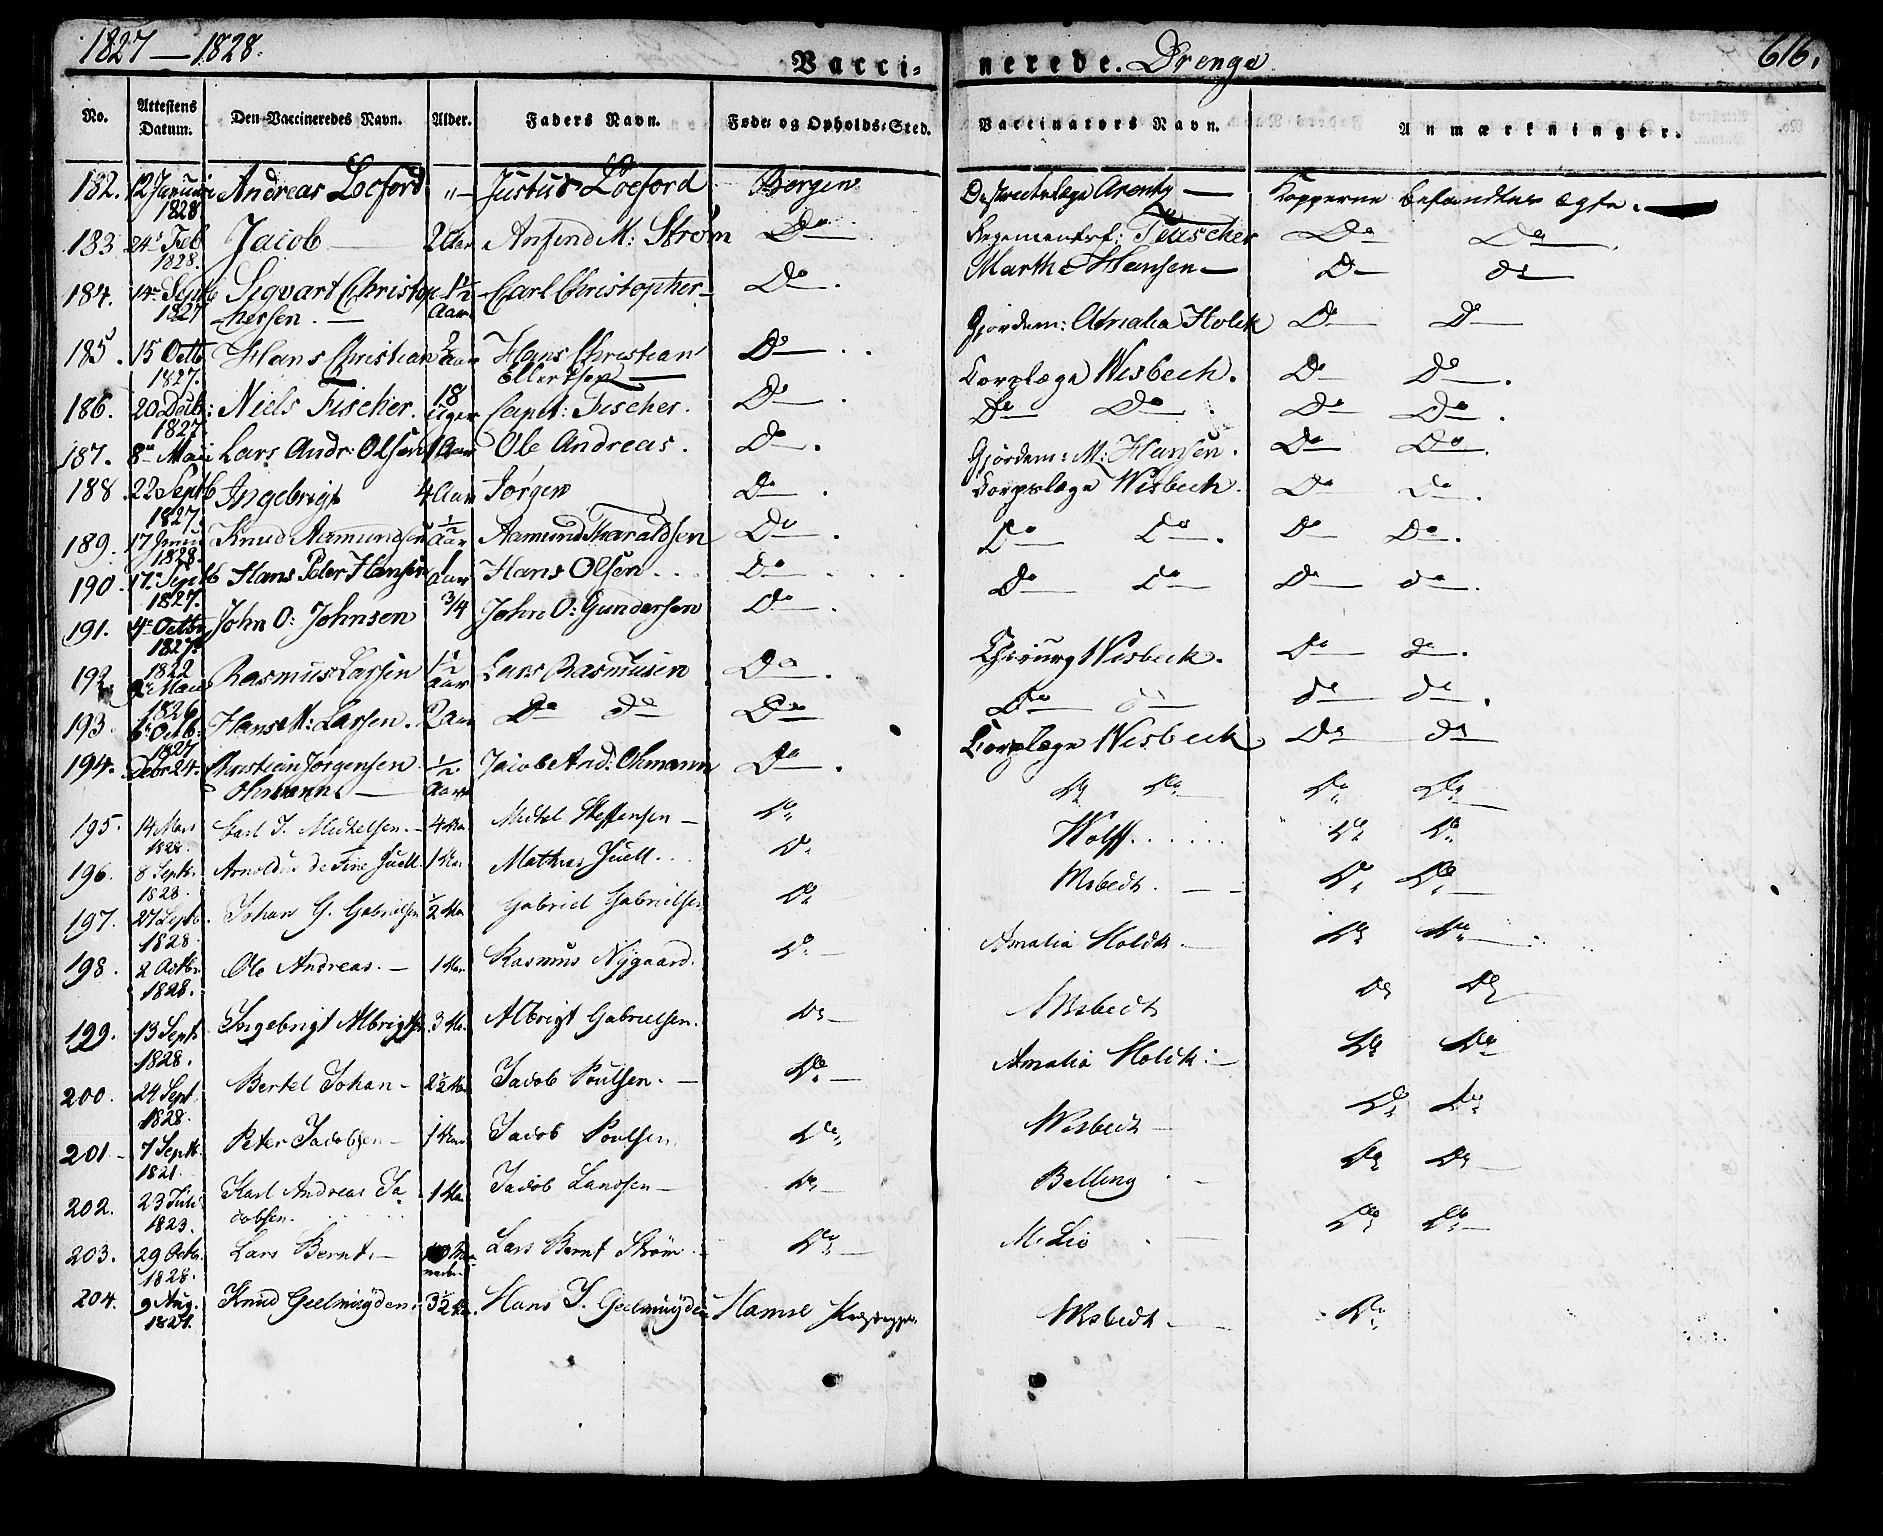 1827 — 1828.
Vacci-
nerede. Drenge.
616.
No. Attestens Datum. Den Vaccineredes Navn. Alder. Faders Navn. Føde- og Opholds-Sted. Vaccinators Navn. Anmærkninger.
182. 12 Januar 1828 Andreas Loeford "— Justus Loeford Bergen Destrictslæge Arentz — Kopperne befandtes ægte. —
183 24 Feb 1828. Jacob — 2 Aar Arnfind M: Strøm Do Regimentsf: Teuscher Do Do
184. 14 Septb 1827 Sigvart Christop- 1½ Aar Carl Christopher- Do. Marthe Hansen — Do do
hersen. —
185. 15 Octb 1827. Hans Christian Aar Hans Christian Do Gjordem: Amalia Holck Do Do
Ellertsen —
186. 20 Decb: 1827. Niels Fischer. 18 Uger Capit: Fischer. Do. Corpslæge Wisbech. Do Do.
Do Do. Do Do.
187. 8 Maii Lars Andr: Olsen 1 Aar Ole Andreas. Do. Gjordem: M: Hansen. Do Do.
188 22 Septb 1827. Ingebrigt 4 Aar Jørgen Do. Corpslæge Wisbech. Do Do.
189. 17 Janu 1828. Knud Aamundsen ½ Aar Aamund Tharaldsen Do. Do Do. Do Do.
190. 17 Septb 1827. Hans Peter Hansen 1 Aar Hans Olsen. Do Do Do Do do.
191. 4 Octbr 1827. John O: Johnsen 3/4 John O: Gundersen Do. Chirurg Wisbeck. Do do.
192. 1822 2 Maii Rasmus Larsen 1½ Aar Lars Rasmusen Do. Do do do do.
193. 1826 6 Octb: Hans M: Larsen. 2 Aar Do do Do Corpslæge Wisbeck Do do
194. 1827 Debr 24. Christian Jørgensen ½ Aar Jacob And: Ohmann Do. Do Do Do Do
Ohmann. —
195. 14 Mars 1828. Carl J. Michelsen. — 4 Aar Michel Steffensen — Do Wolff. Do Do
196. 8 Septr. 1828. Arnoldus de Fine Juell. 1 Aar Mathias Juell. Do Wisbech. — — Do Do
197. 27 Septb 1828. Johan G. Gabrielsen ½ Aar Gabriel Gabrielsen Do Amalia Holck. — Do Do
198. 2 Octbr. 1828. Ole Andreas. — 1 Aar Rasmus Nygaard. Do — Wisbech Do Do
199. 13 Septr 1828. Ingebrigt Albrigtsen 3 Aar Albrigt Gabrielsen. Do — Amalia Holck. — Do Do
200. 24 Sept 1828. Bertel Johan — 2½ Aar Jacob Poulsen. — Do — Wisbech — Do Do
201. 7 Septr. 1821. Peter Jacobsen — 1 Aar Jacob Poulsen. Do Balling Do Do —
202. 23 Juli 1823. Karl Andreas Ja- 1 Aar Jacob Landsen — Do — M. Lio Do Do —
cobsen.
203. 29 Octb. 1828. Lars Bernt. — Lars Bernt Strøm Do —
204. 9 Aug. 1821. Knud Geelmuyden. 3½ Aar. Hans J. Geelmuyden Hamre Wisbech. — Do